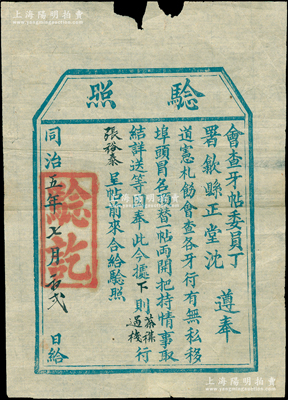 上海陽明拍賣
驗照
會查牙帖委員丁
署歙縣正堂沈
遵奉
道憲札飭會查各牙行有無私移
埠頭冒名頂替一帖兩開把持情事取
結詳送等因奉此今據下則茶樣過棧行
張裕泰呈帖前來合給驗照
同治五年七月 日給
驗訖